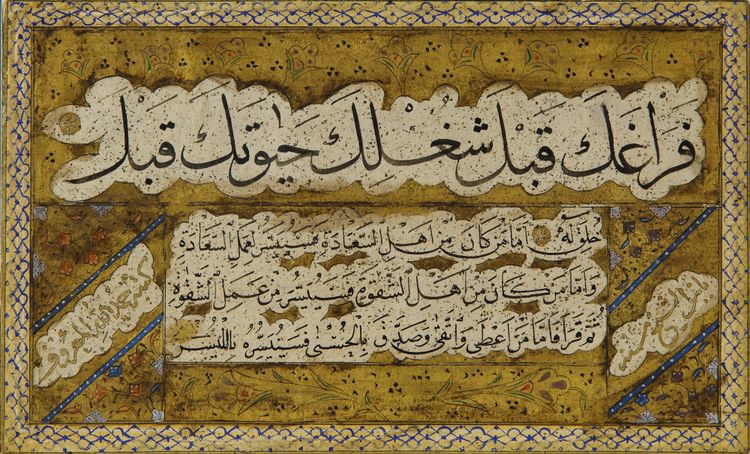 فَرَاغَكَ قَبْلَ شُغْلِكَ حَيٰوتَكَ قَبْلَ
خلق له اما من كان من اهل السعادة فسييسر لعمل السعادة
واما من كان من اهل الشقوة فسييسر من عمل الشقوة
ثم قرا فاما من اعطى واتقى وصدق بالحسنى فسنيسره لليسر
كتبه حمد الله المعروف
بابن الشيخ